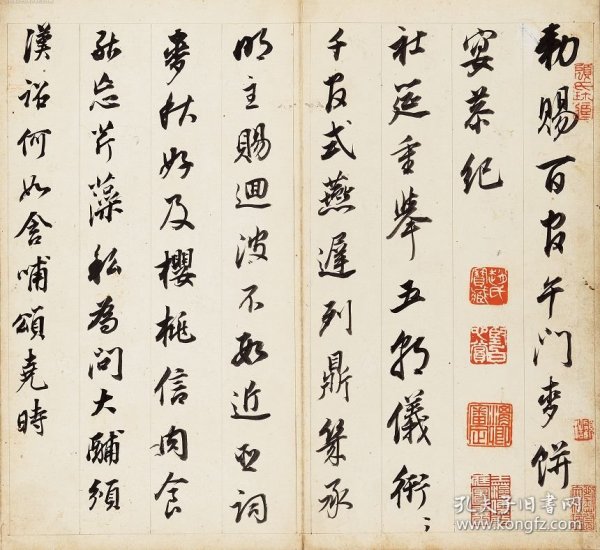 勅賜百官午門麥餅
宴恭紀
社筵重舉五朝儀衎〻
千官式燕遲列鼎幾承
明主賜迴波不數近臣詞
麥秋好及櫻桃信肉食
能忘芹藻私為問大酺頒
漢詔何如含哺頌堯時
孔夫子旧书网
www.kongfz.com